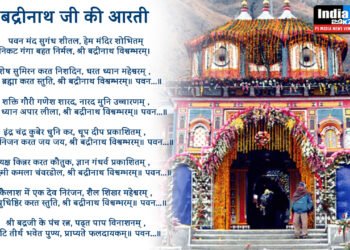 बद्रीनाथ जी की आरती
पवन मंद सुगंध शीतल, हेम मंदिर शोभितम्
निकट गंगा बहत निर्मल, श्री बद्रीनाथ विश्वम्भरम्।
शेष सुमिरन करत निशदिन, धरत ध्यान महेश्वरम् ,
ब्रह्मा करत स्तुति, श्री बद्रीनाथ विश्वम्भरम्॥ पवन...॥
शक्ति गौरी गणेश शारद, नारद मुनि उच्चारणम् ,
ध्यान अपार लीला, श्री बद्रीनाथ विश्वम्भरम्॥ पवन...॥
इंद्र चंद्र कुबेर धुनि कर, धूप दीप प्रकाशितम् ,
जन करत जय जय, श्री बद्रीनाथ विश्वम्भरम्॥ पवन...॥
यक्ष किन्नर करत कौतुक, ज्ञान गंधर्व प्रकाशितम् ,
कमला चंवरडोल, श्री बद्रीनाथ विश्वम्भरम्॥ पवन...॥
कैलाश में एक देव निरंजन, शैल शिखर महेश्वरम् ,
युधिष्ठिर करत स्तुति, श्री बद्रीनाथ विश्वम्भरम्॥ पवन...॥
श्री बद्रजी के पंच रत्न, पढ्त पाप विनाशनम् ,
टि तीर्थ भवेत पुण्य, प्राप्यते फलदायकम्॥ पवन...॥
India